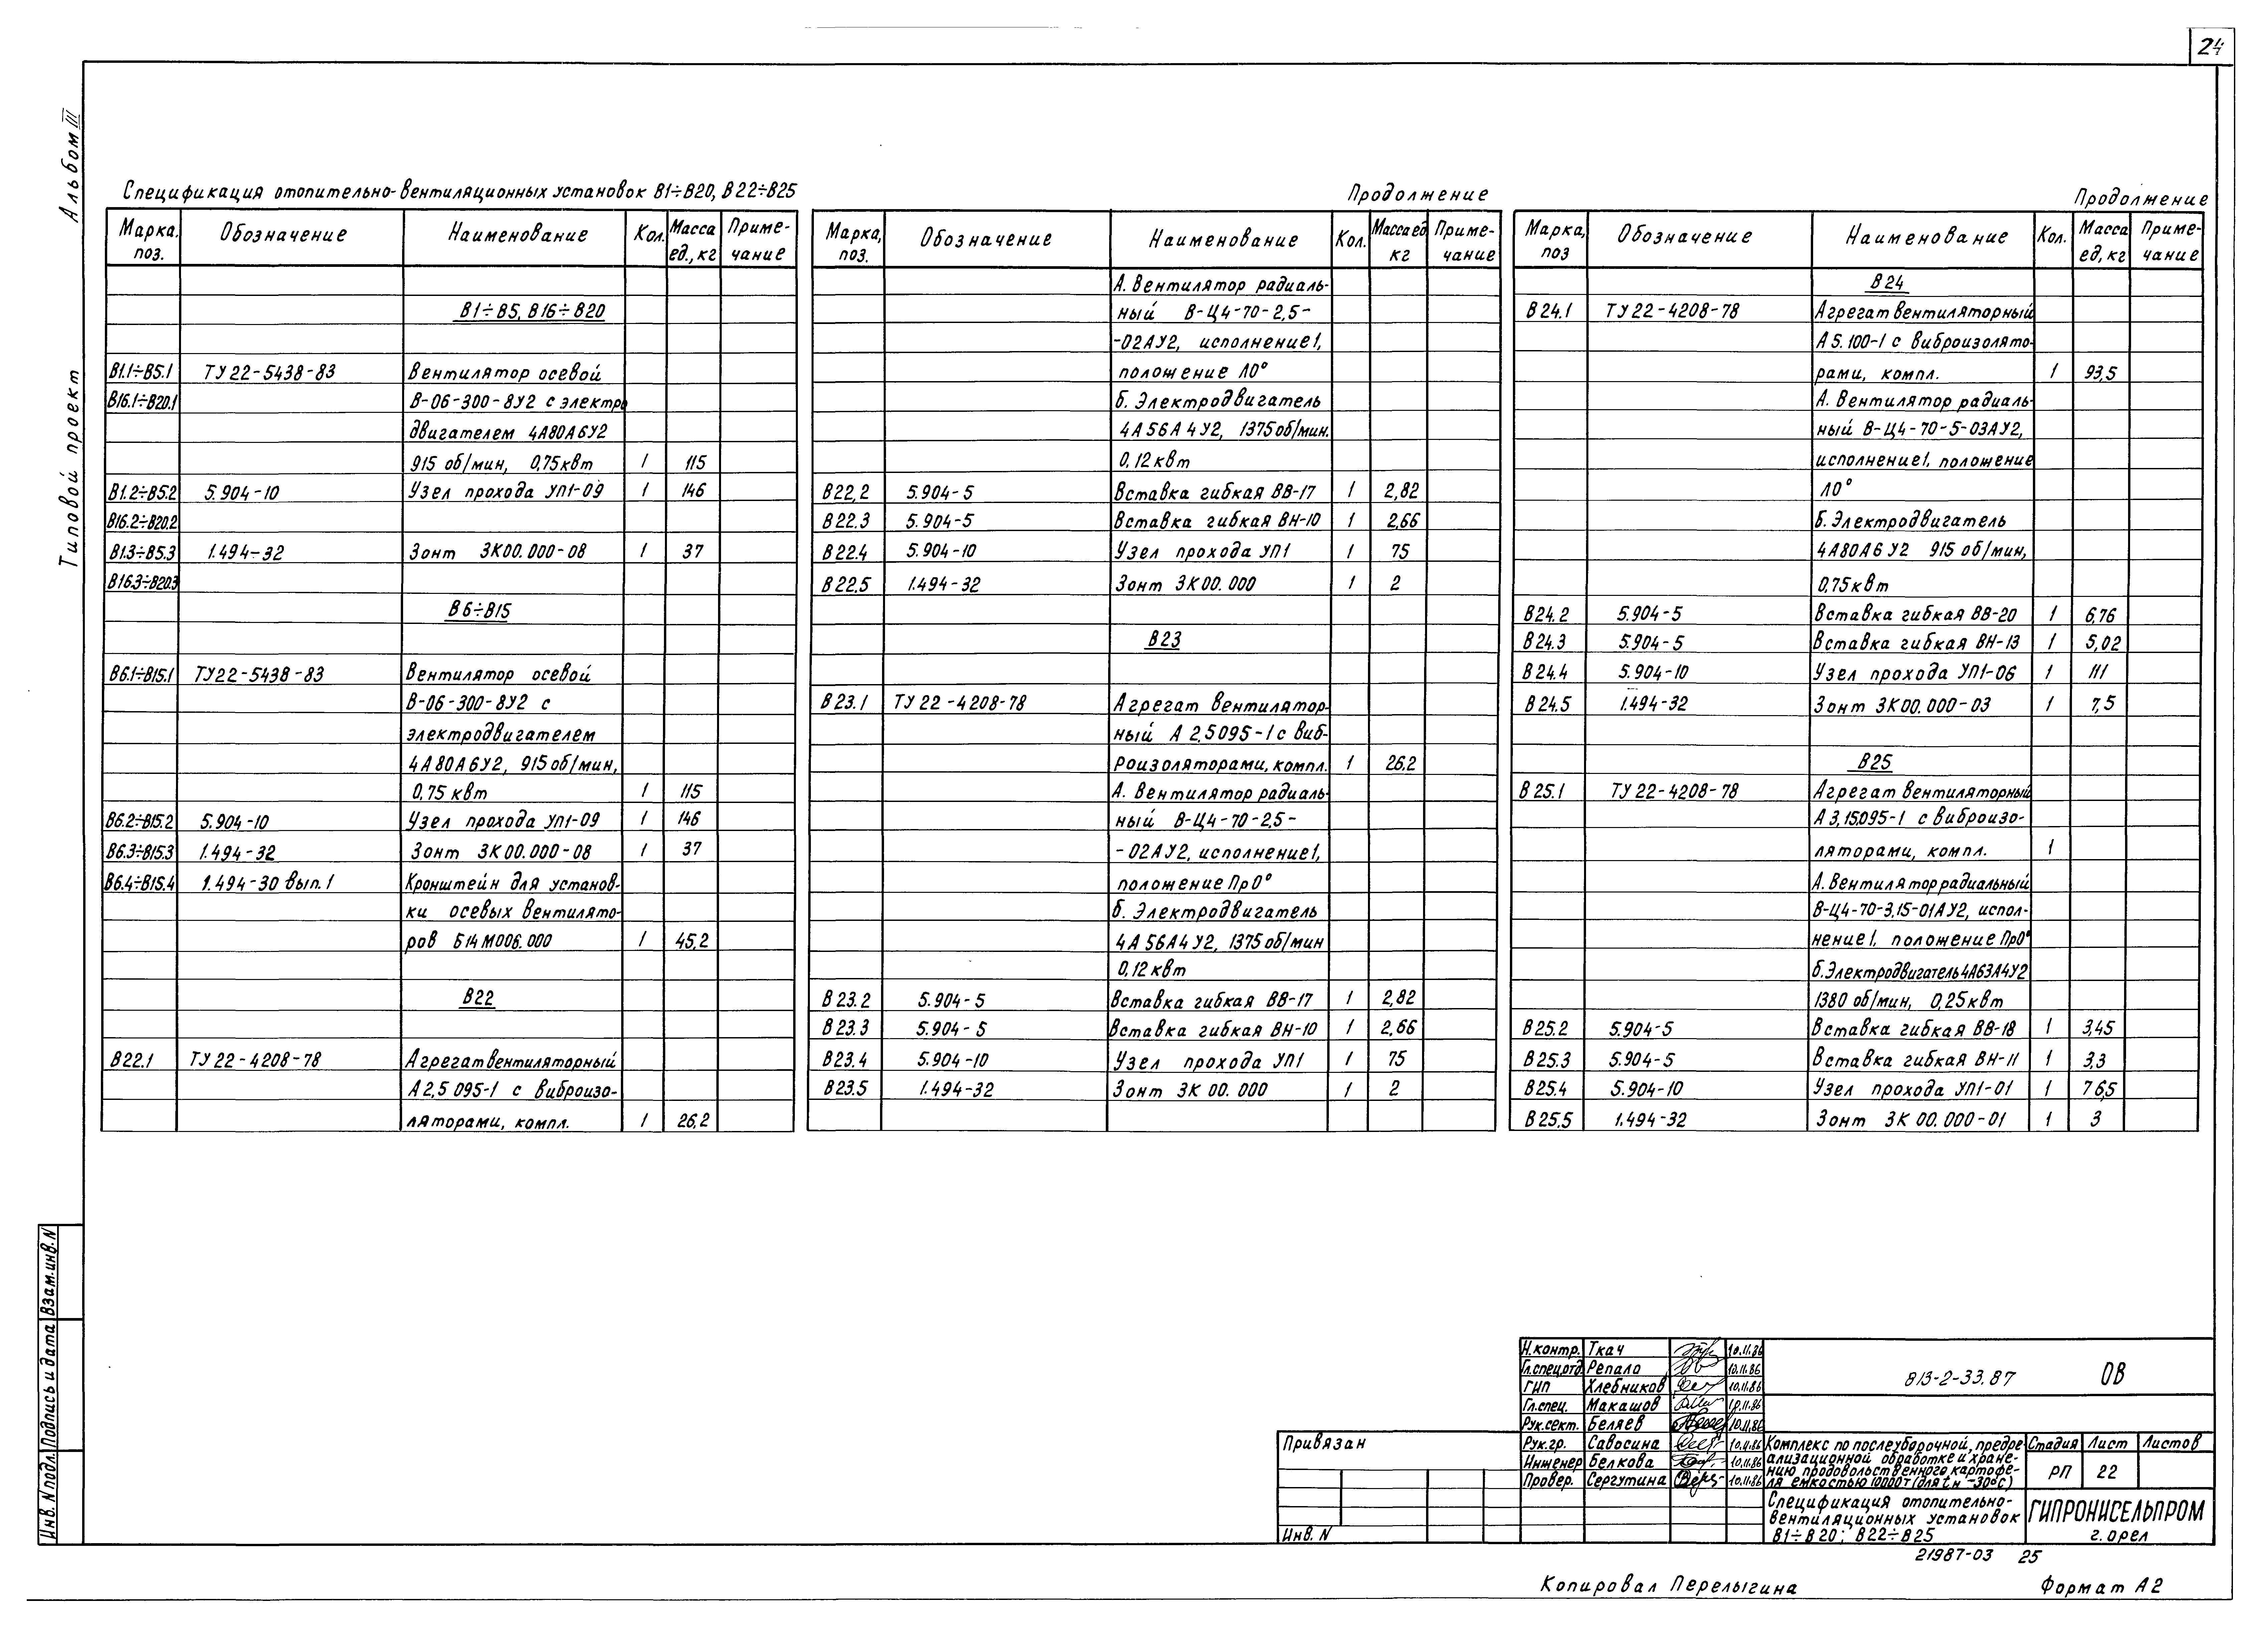 24
Альбом III
Типовой проект
Спецификация отопительно-вентиляционных установок В1÷В20, В22÷В25
Марка, поз. Обозначение Наименование Кол. Масса ед., кг Приме-чание
В1÷В5, В16÷В20
В1.1÷В5.1 ТУ22-5438-83 Вентилятор осевой
В16.1÷В20.1 В-06-300-8У2 с электро
двигателем 4А80А6У2
915 об/мин, 0,75квт 1 115
В1.2÷В5.2 5.904-10 Узел прохода УП1-09 1 146
В16.2÷В20.2
В1.3÷В5.3 1.494-32 Зонт ЗК00.000-08 1 37
В16.3÷В20.3
В6÷В15
В6.1÷В15.1 ТУ22-5438-83 Вентилятор осевой
В-06-300-8У2 с
электродвигателем
4А80А6У2, 915об/мин,
0,75 квт 1 115
В6.2÷В15.2 5.904-10 Узел прохода УП1-09 1 146
В6.3÷В15.3 1.494-32 Зонт ЗК00.000-08 1 37
В6.4÷В15.4 1.494-30 вып.1 Кронштейн для установ-
ки осевых вентилято-
ров Б14М006.000 1 45,2
В22
В22.1 ТУ22-4208-78 Агрегат вентиляторный
А2,5 095-1 с виброизо-
ляторами, компл. 1 26,2
Продолжение
Марка, поз. Обозначение Наименование Кол. Масса ед кг Приме-чание
А. Вентилятор радиаль-
ный В-Ц4-70-2,5-
-02АУ2, исполнение1,
положение Л0°
б. Электродвигатель
4А56А4У2, 1375об/мин.
0,12квт
В22,2 5.904-5 Вставка гибкая ВВ-17 1 2,82
В22.3 5.904-5 Вставка гибкая ВН-10 1 2,66
В22.4 5.904-10 Узел прохода УП1 1 75
В22.5 1.494-32 Зонт ЗК00.000 1 2
В23
В23.1 ТУ22-4208-78 Агрегат вентилятор-
ный А 2,5095-1с виб-
роизоляторами, компл. 1 26.2
А. Вентилятор радиаль-
ный В-Ц4-70-2,5-
-02АУ2, исполнение1,
положение Пр0°
б. Электродвигатель
4А56А4У2, 1375об/мин
0,12квт
В23.2 5.904-5 Вставка гибкая ВВ-17 1 2,82
В23.3 5.904-5 Вставка гибкая ВН-10 1 2,66
В23.4 5.904-10 Узел прохода УП1 1 75
В23.5 1.494-32 Зонт ЗК 00.000 1 2
Продолжение
Марка, поз Обозначение Наименование Кол. Масса ед, кг Приме-чание
В24
В24.1 ТУ22-4208-78 Агрегат вентиляторный
А5.100-1 с виброизолято-
рами, компл. 1 93,5
А. Вентилятор радиаль-
ный В-Ц4-70-5-03АУ2,
исполнение1, положение
Л0°
б. Электродвигатель
4А80А6У2 915 об/мин,
0,75квт
В24.2 5.904-5 Вставка гибкая ВВ-20 1 6,76
В24.3 5.904-5 Вставка гибкая ВН-13 1 5,02
В24.4 5.904-10 Узел прохода УП1-06 1 111
В24.5 1.494-32 Зонт ЗК00.000-03 1 7,5
В25
В25.1 ТУ22-4208-78 Агрегат вентиляторный
А3,15.095-1 с виброизо-
ляторами, компл. 1
А. Вентилятор радиальный
В-Ц4-70-3,15-01АУ2, испол-
нение1, положение Пр0°
б. Электродвигатель 4А63А4У2
1380 об/мин, 0,25квт
В25.2 5.904-5 Вставка гибкая ВВ-18 1 3,45
В25.3 5.904-5 Вставка гибкая ВН-11 1 3,3
В25.4 5.904-10 Узел прохода УП1-01 1 76,5
В25.5 1.494-32 Зонт ЗК 00.000-01 1 3
Взам.инв.N
Подпись и дата
Инв.N подл.
Привязан
Инв. N
Н.контр. Ткач 10.11.86
Гл.спец.отд Репало 10.11.86
ГИП Хлебников 10.11.86
Гл.спец. Макашов 10.11.86
Рук.сект. Беляев 10.11.86
Рук.гр. Савосина 10.11.86
Инженер Белкова 10.11.86
Провер. Сергутина 10.11.86
813-2-33.87 ОВ
Комплекс по послеуборочной, предре-
ализационной обработке и хране-
нию продовольственного картофе-
ля емкостью 10000т (для tн -30°С)
Стадия Лист Листов
РП 22
Спецификация отопительно-
вентиляционных установок
В1÷В20; В22÷В25
ГИПРОНИСЕЛЬПРОМ
г. Орел
21987-03 25
Копировал Перелыгина Формат А2